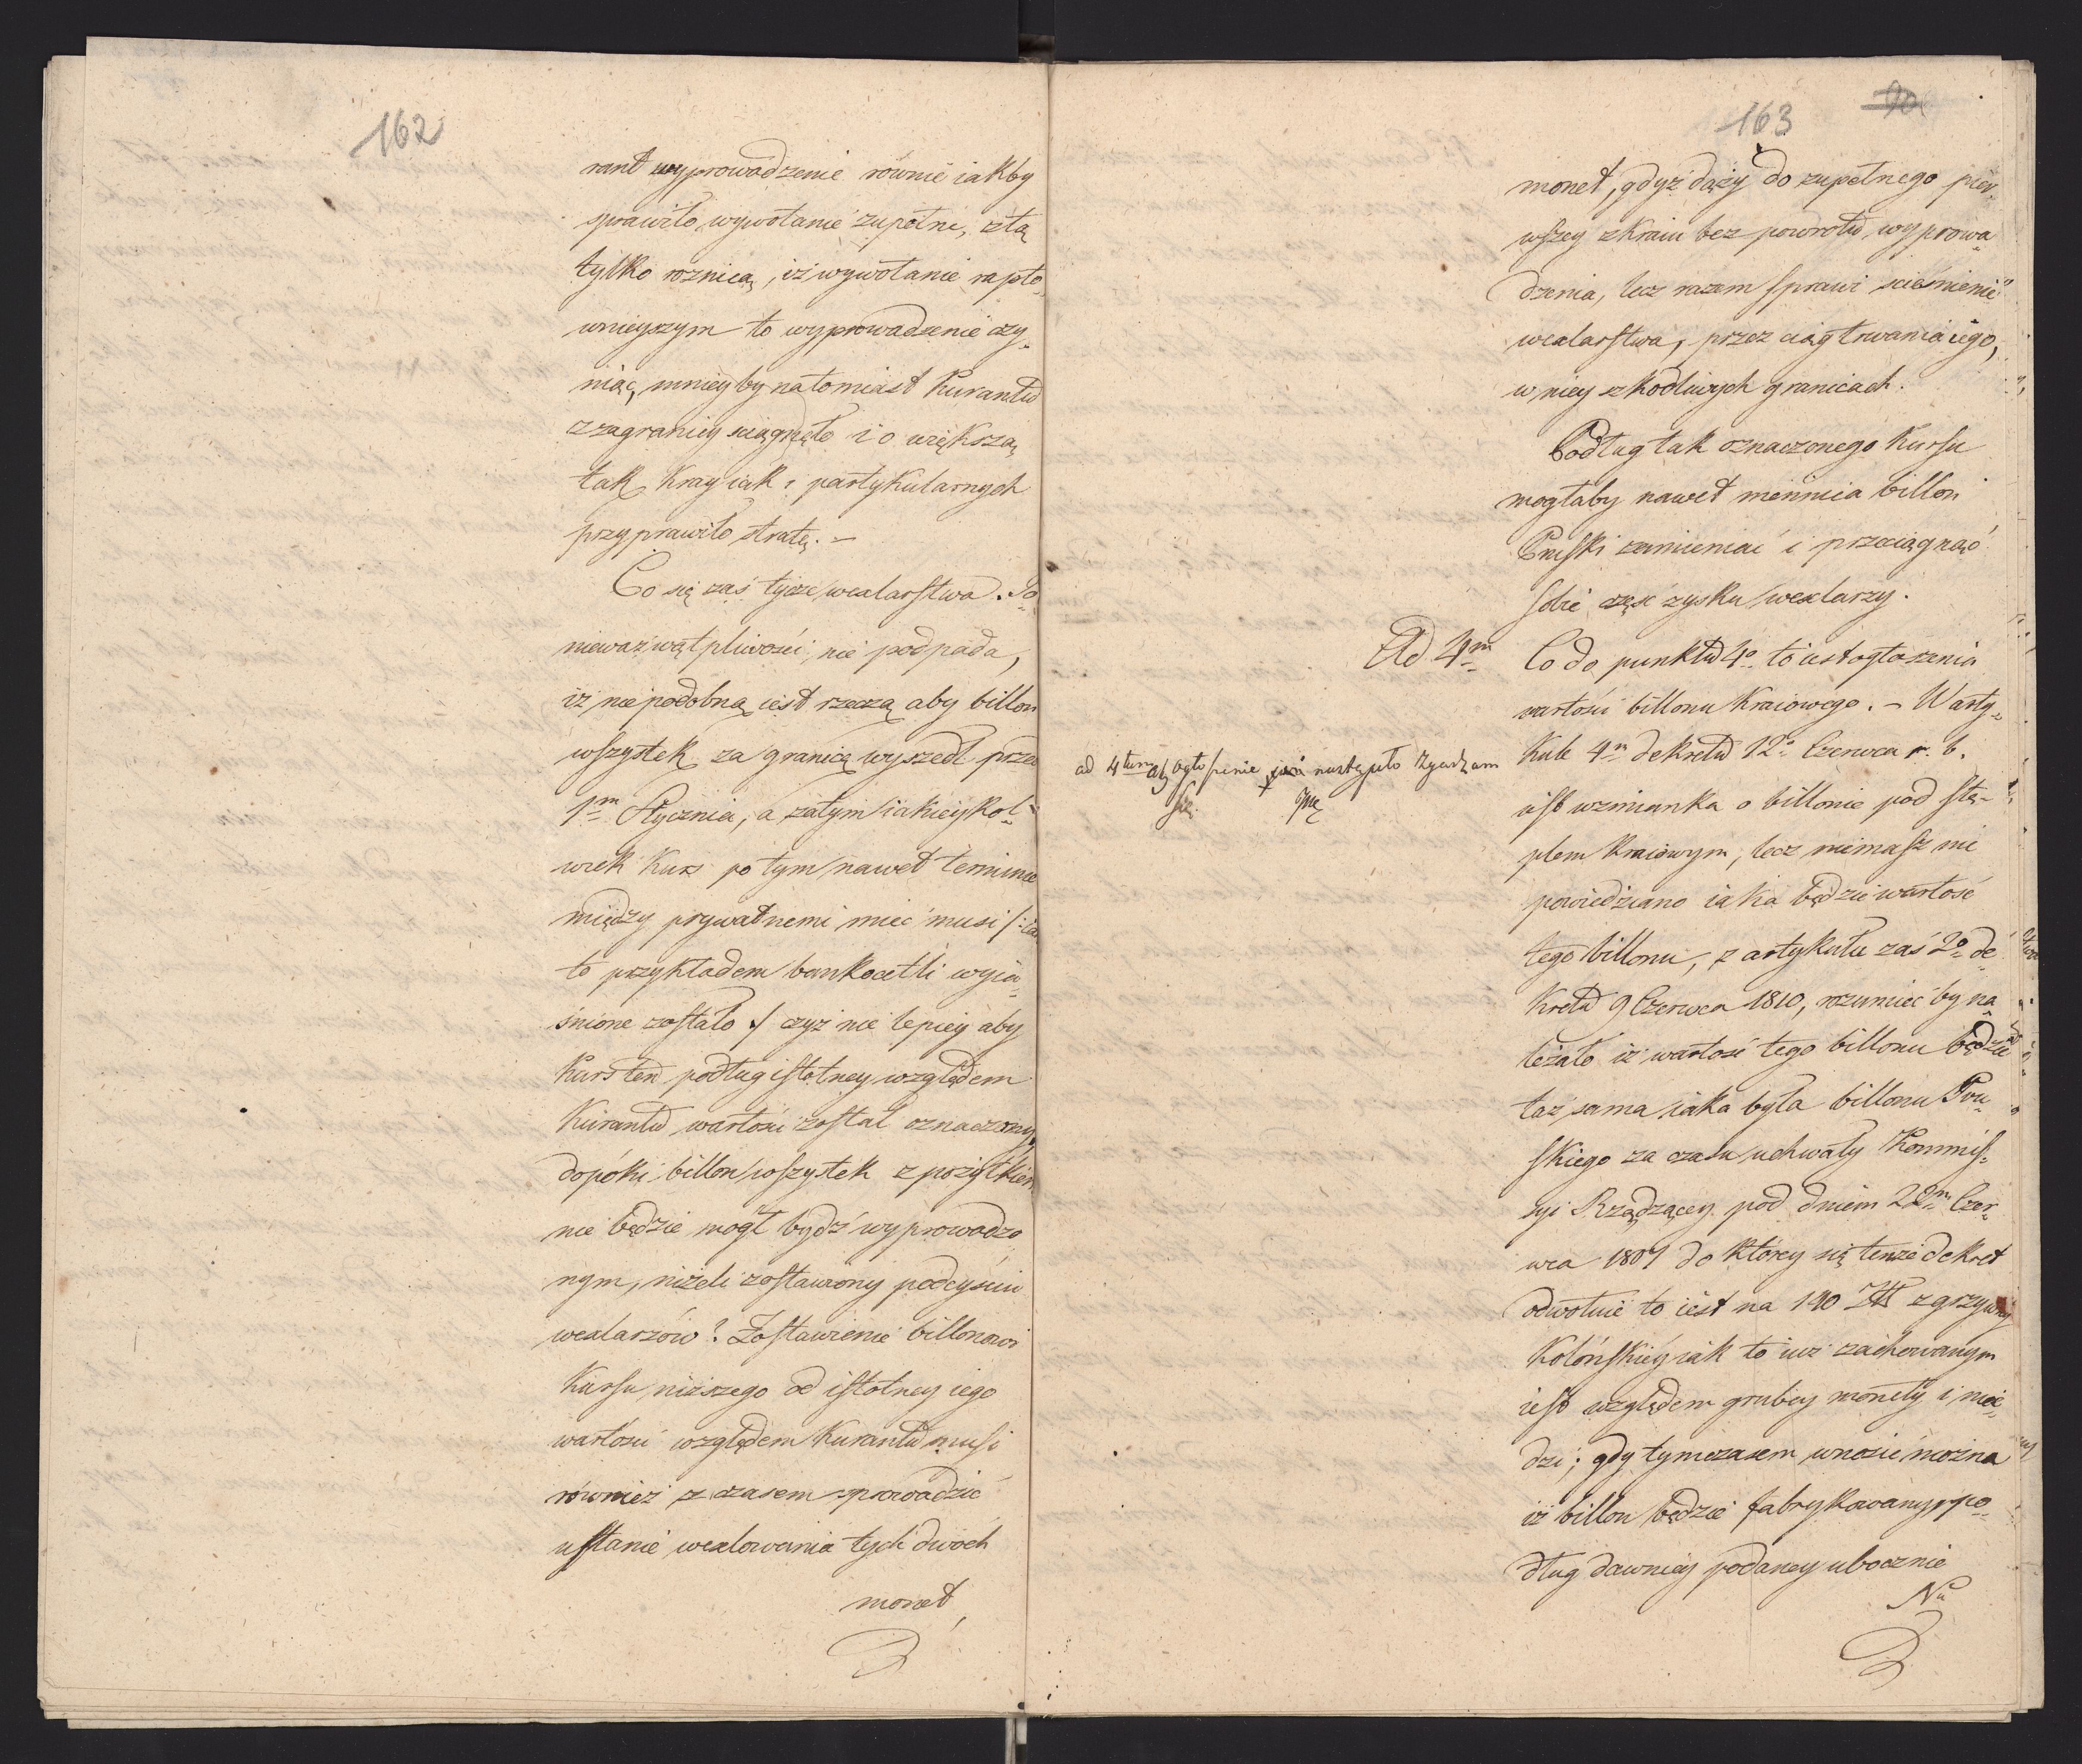 162
rant wyprowadzenie rownie iakby
sprawiło wywołanie zupełne, z tą
tylko roznicą, iż wywołanie rapto„
wnieyszym to wyprowadzenie czy„
niąc, mniey by natomiast Kurantu
z zagranicy sciągnęło i o większą
tak Kray iak i partykularnych
przyprawiło stratę. –
Co się zaś tycze wexlarstwa. Po„
nieważ wątpliwości nie podpada,
iż niepodobną iest rzeczą aby billon
wszystek za granicę wyszedł przed
1m Stycznia, a zatym iakieykol„
wiek Kurs po tym nawet terminie
między prywatnemi mieć musi /: iak
to przykładem bankocetli wyia„
śnione zostało :/ czyż nie lepiey aby
Kurs ten podług istotney względem
Kurantu wartości został oznaczony,
dopóki billon wszystek z pożytkiem
nie będzie mogł bydź wyprowadzo„
nym, niżeli zostawiony
wexlarzów? Zostawienie billonowi
Kursu niższego od istotney iego
wartości względem Kurantu musi
również z czasem sprowadzić
ustanie wexlowania tych dwóch
monet,
163
monet, gdyż dąży do zupełnego pier„
wszey z Kraiu bez powrotu wyprowa„
dzenia, lecz razem sprawi ściesnienie
wexlarstwa, przez ciąg trwania iego,
w niey szkodliwych granicach.
Podług tak oznaczonego Kursu
mogłaby nawet mennica billon
Pruski zamieniać i przeciągnąć
sobie część zysku wexlarzy.
Ad 4m Co do punktu 4o to iest ogłoszenia
wartości billonu Kraiowego. – W arty„
kule 4m dekretu 12o Czerwca r. b.
iest wzmianka o billonie pod stę„
plem Kraiowym, lecz niemasz nic
powiedziano iaka będzie wartość
tego billonu, z artykułu zaś 2o de„
kretu 9 Czerwca 1810, rozumieć by na„
leżało iż wartość tego billonu będzie
taż sama iaka była billonu Pru„
skiego za czasu uchwały Kommis„
syi Rządzącey pod dniem 22m Czer„
wca 1807 do ktorey się tenże dekret
odwołuie to iest na 140 z grzywny
Kolońskiey iak to iuż zachowanym
iest względem grubey monety i mie„
dzi; gdy tymczasem wnosić można
iż billon będzie fabrykowany po„
dług dawniey podaney ubocznie
Nu
ad 4tum aby ogłoszenie nastąpiło zgadzam
się